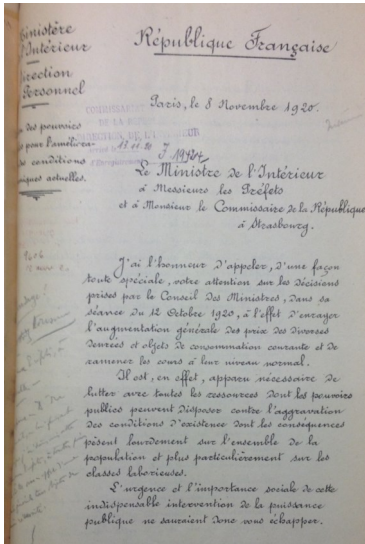 Ministère
de l'Intérieur
Direction
du Personnel
des pouvoirs
pour l'améliora-
conditions
actuelles.
République Française
Paris, le 8 Novembre 1920.
COMMISSARIAT
DE LA RÉPUBLIQUE
13.11.20
Le Ministre de l'Intérieur
à Messieurs les Préfets
et à Monsieur le Commissaire de la République
à Strasbourg.
J'ai l'honneur d'appeler, d'une façon
toute spéciale, votre attention sur les décisions
prises par le Conseil des Ministres, dans sa
séance du 12 Octobre 1920, à l'effet d'enrayer
l'augmentation générale des prix des diverses
denrées et objets de consommation courante et de
ramener les cours à leur niveau normal.
Il est, en effet, apparu nécessaire de
lutter avec toutes les ressources dont les pouvoirs
publics peuvent disposer contre l'aggravation
des conditions d'existence dont les conséquences
pèsent lourdement sur l'ensemble de la
population et plus particulièrement sur les
classes laborieuses.
L'urgence et l'importance sociale de cette
indispensable intervention de la puissance
publique ne sauraient donc vous échapper.